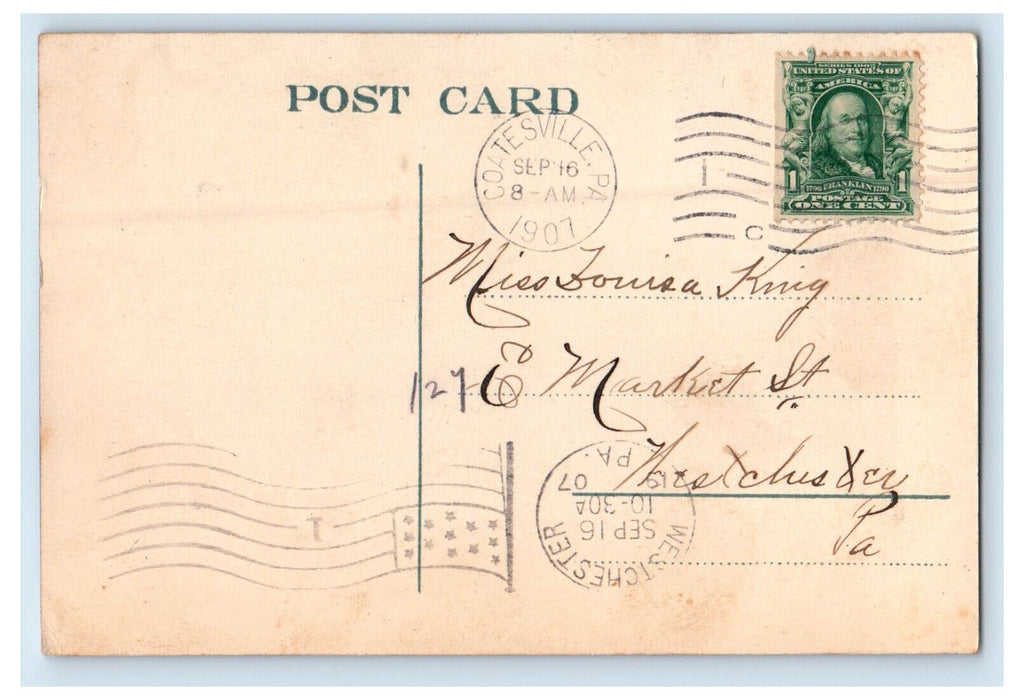 POST CARD
SERIES 1902
UNITED STATES OF
AMERICA
1 1706 FRANKLIN 1790 1
POSTAGE
ONE CENT
COATESVILLE, PA.
SEP 16
8-AM
1907
1
C
Miss Louisa King
127 E Market St
Westchester
Pa
WESTCHESTER PA.
SEP 16
10-30A
07
1